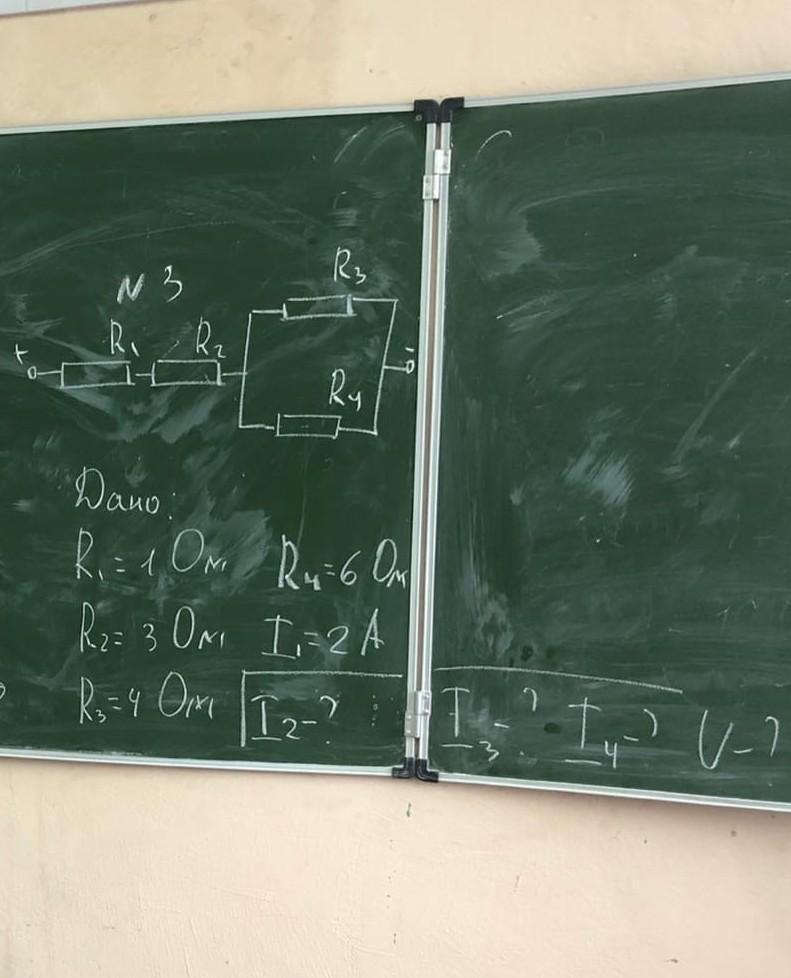 N 3
R₃
+ R₁ R₂ -
R₄
Дано:
R₁ = 1 Ом R₄ = 6 Ом
R₂ = 3 Ом I₁ = 2 А
R₃ = 4 Ом I₂ - ? I₃ - ? I₄ - ? U - ?